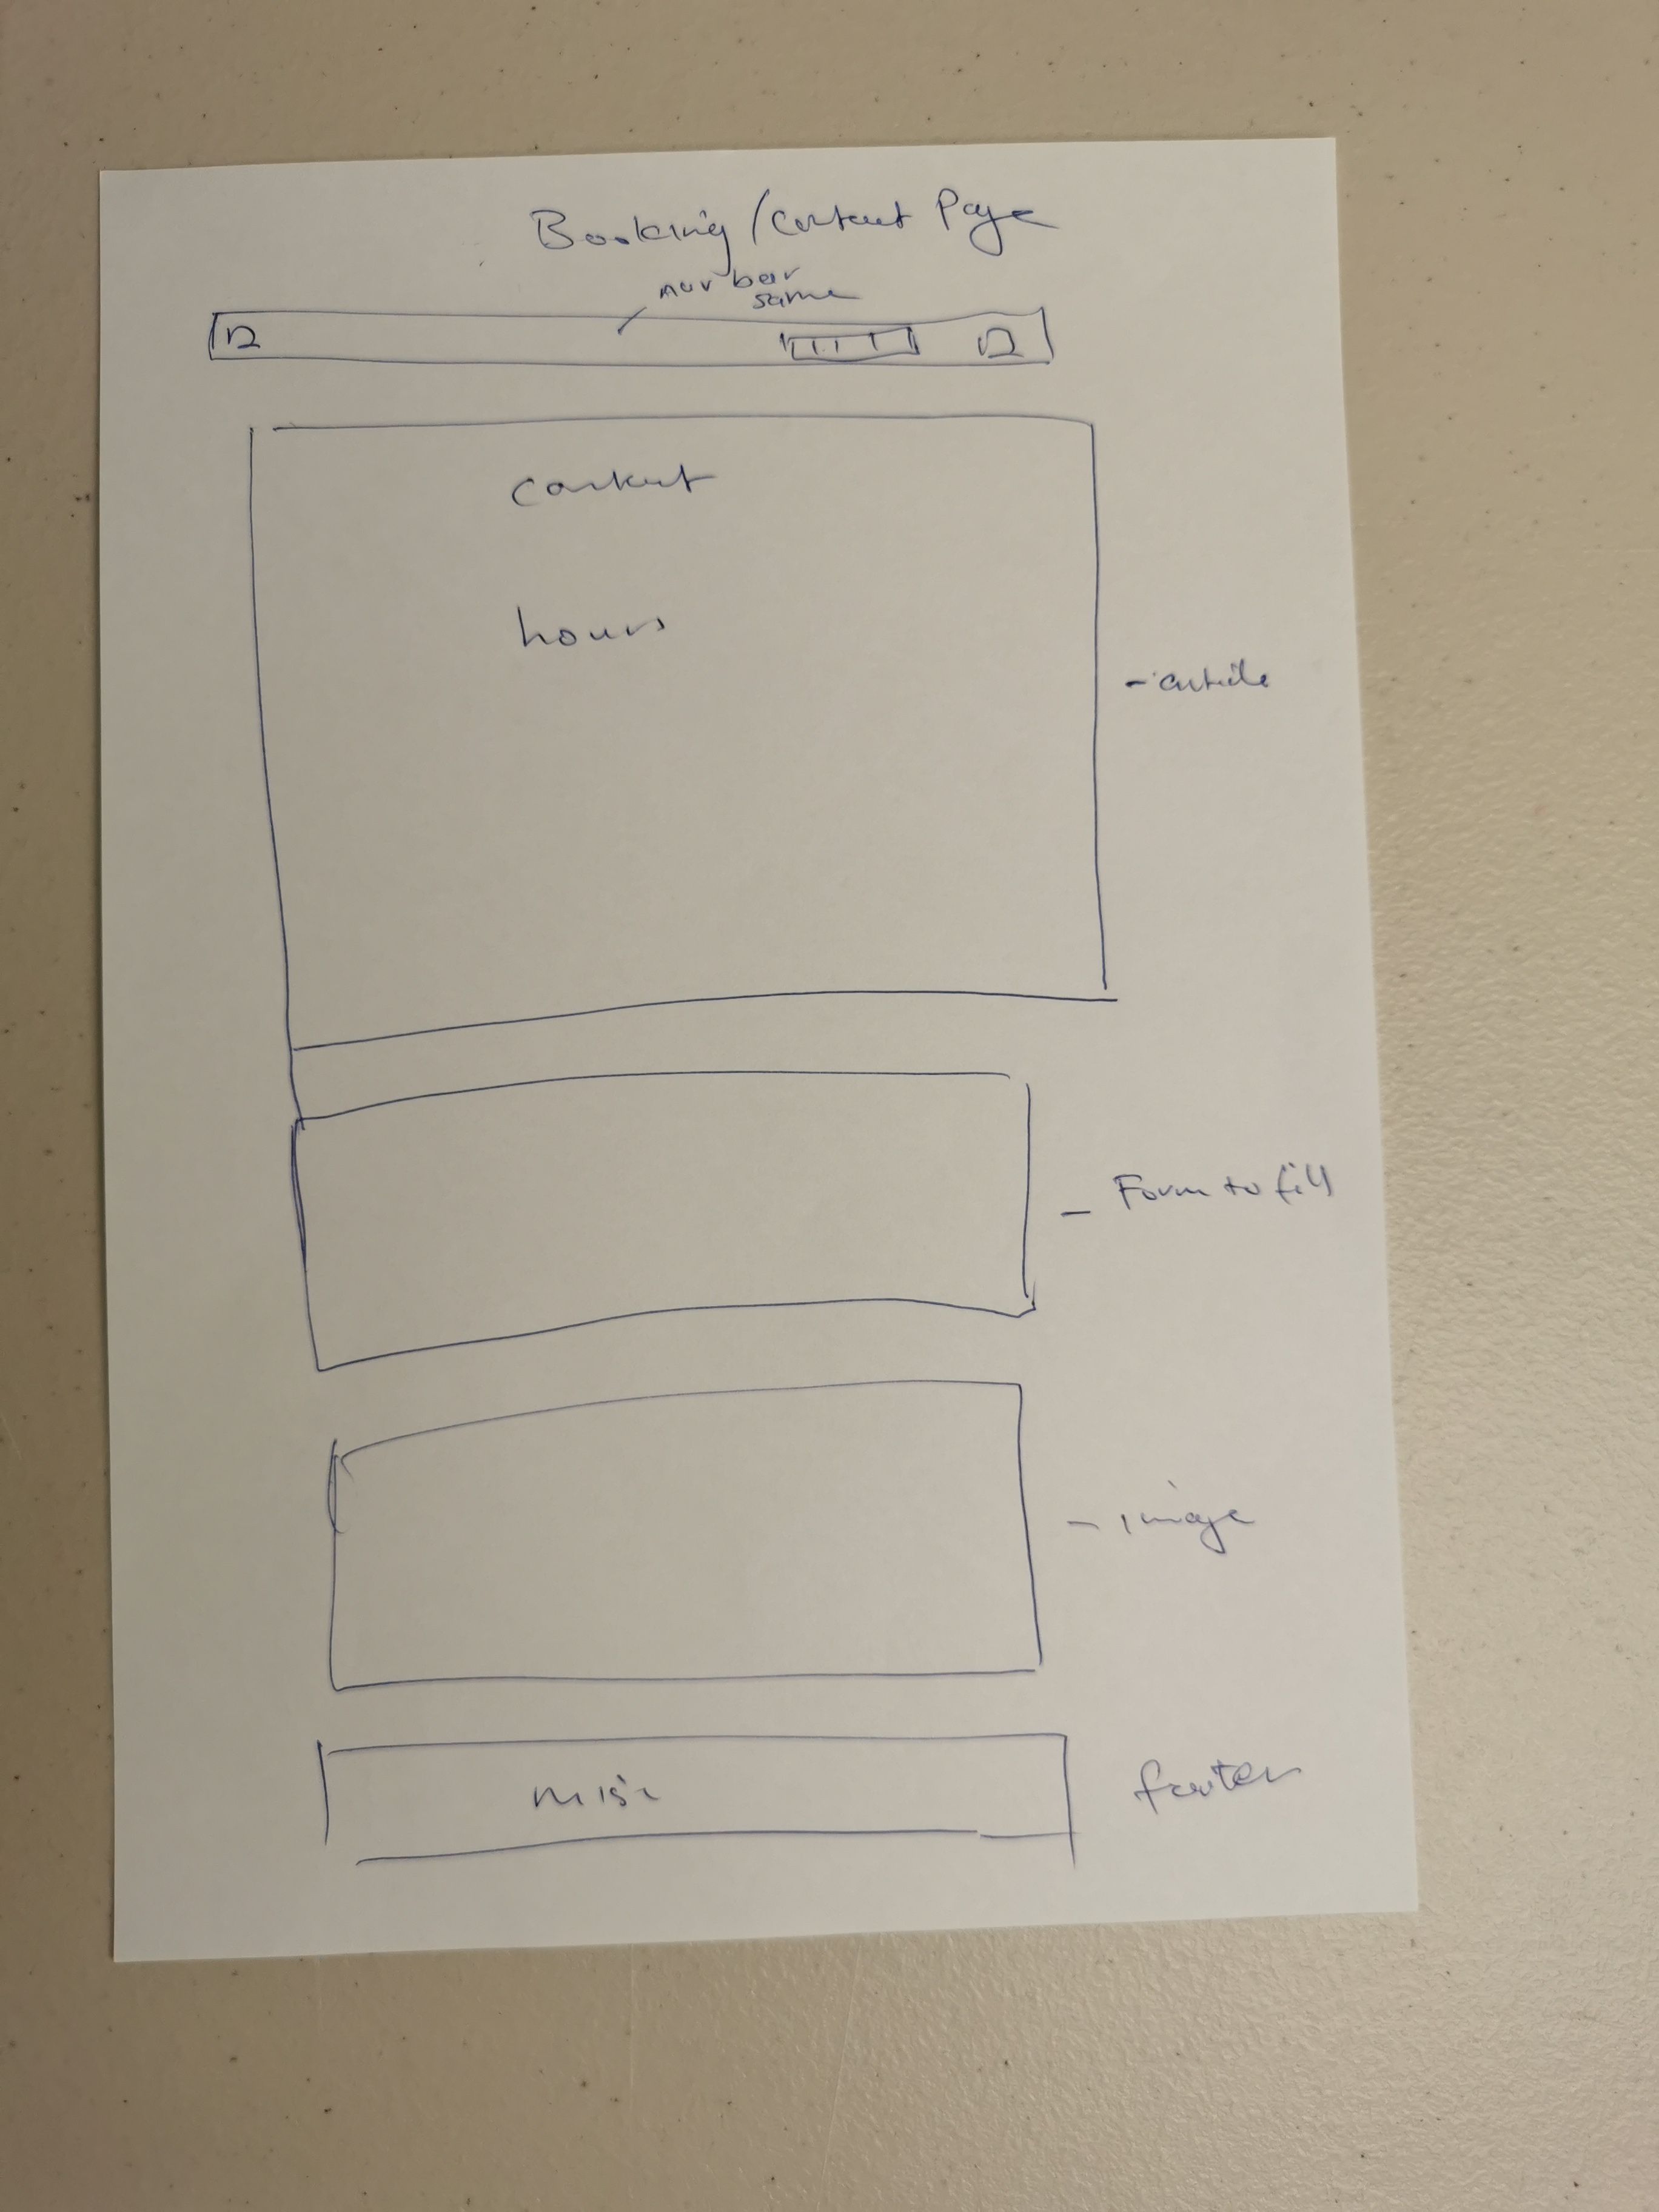 Booking / Contact Page
nav bar
same
contact
hours
- article
- Form to fill
- image
misc
footer